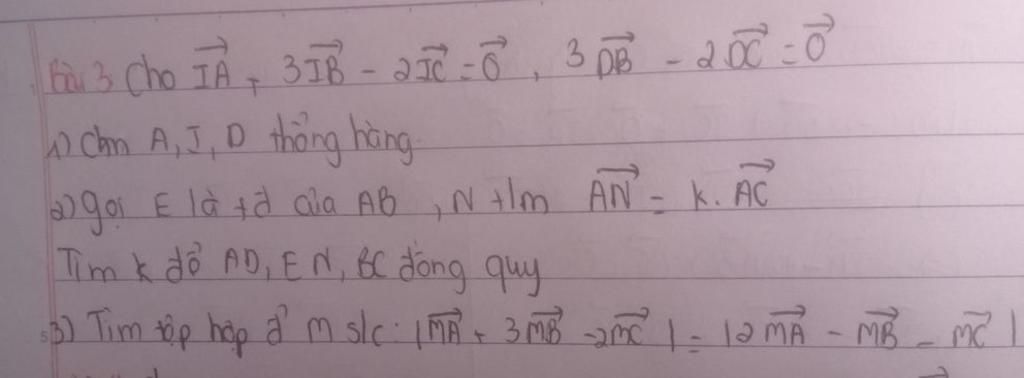 Bài 3 Cho \(\overrightarrow{IA} + 3\overrightarrow{IB} - 2\overrightarrow{IC} = \overrightarrow{0}\), \(3\overrightarrow{DB} - 2\overrightarrow{DC} = \overrightarrow{0}\)
1) Cm A, I, D thẳng hàng.
2) gọi E là tđ của AB, N t/m \(\overrightarrow{AN} = k.\overrightarrow{AC}\)
Tìm k để AD, EN, BC đồng quy
3) Tìm tập hợp đ' m s/c: \(|\overrightarrow{MA} + 3\overrightarrow{MB} - 2\overrightarrow{MC}| = |2\overrightarrow{MA} - \overrightarrow{MB} - \overrightarrow{MC}|\)